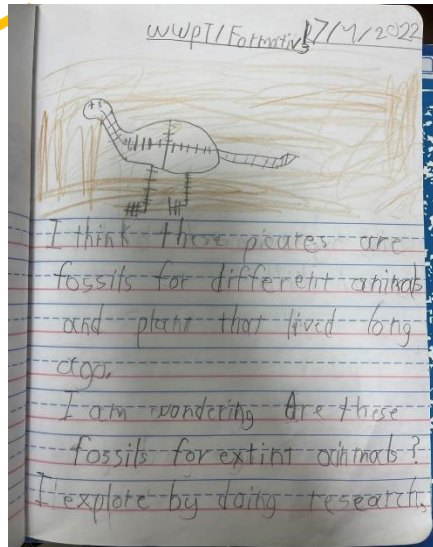 WWPT/Formative 17/1/2022
I think these picures are
fossils for different animals
and plant that lived long
ago.
I am wondering Are these
fossils for extint ainmals?
I explore by doing research.